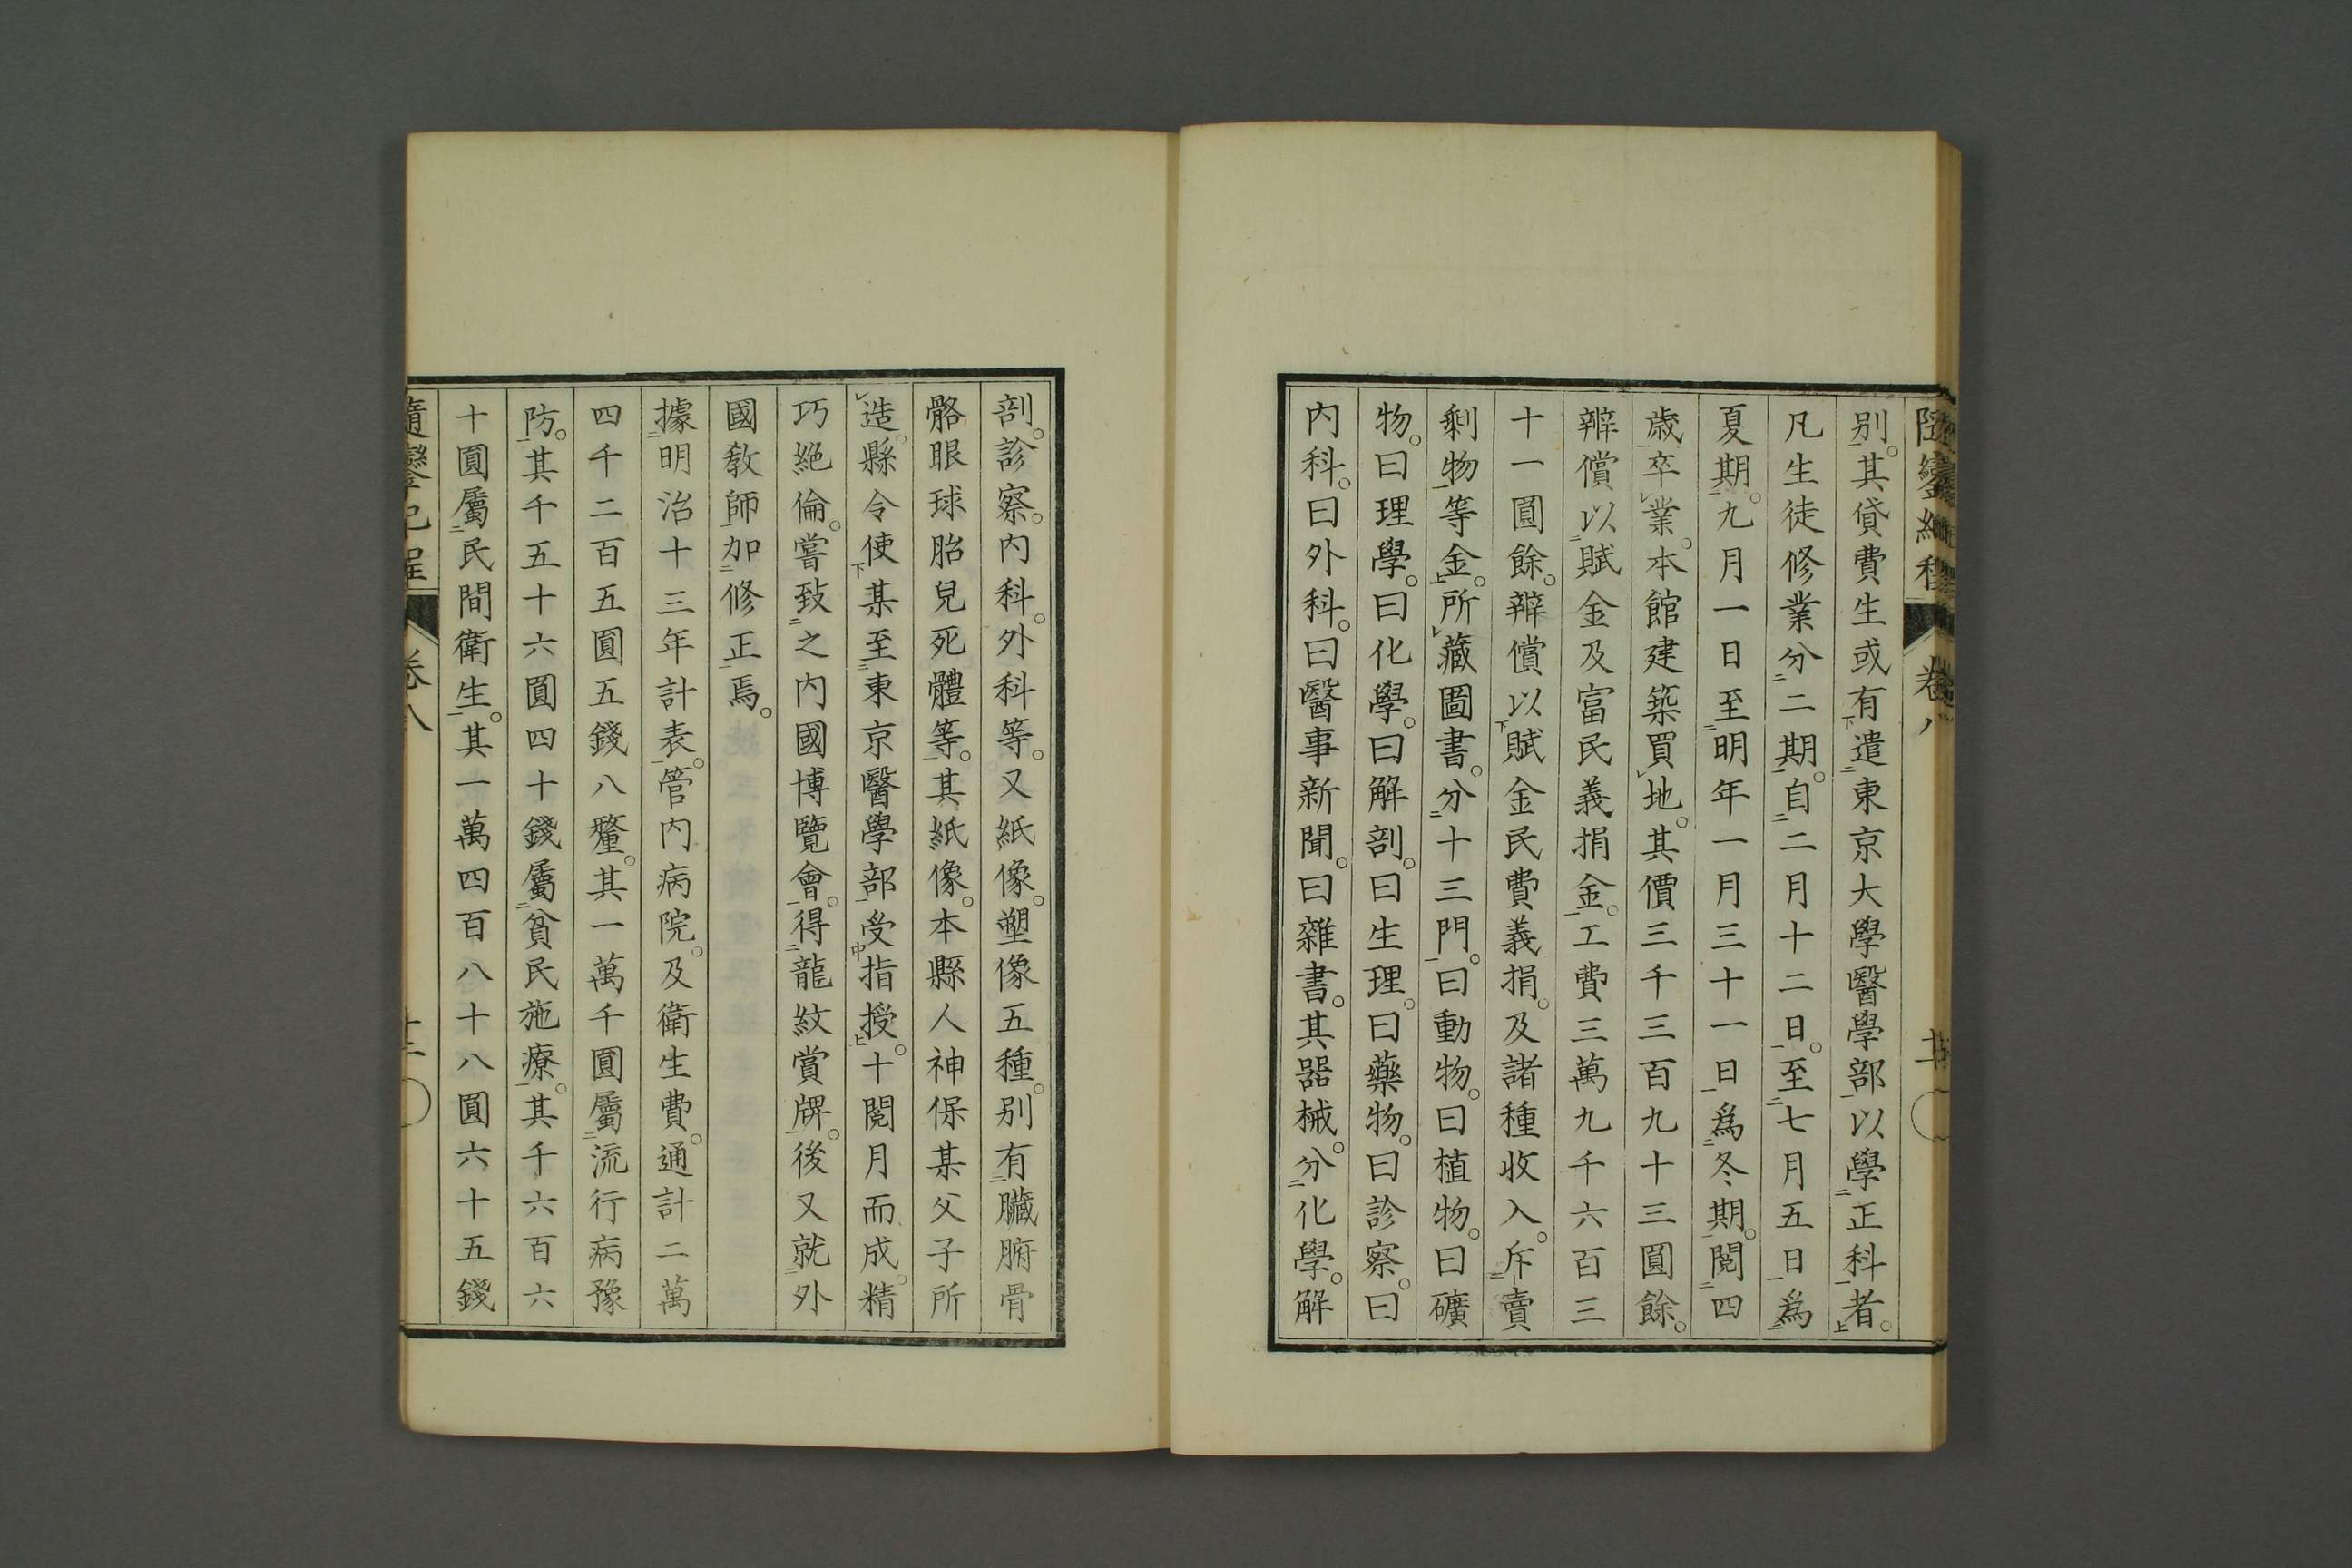 隨鑾紀程 卷八
別。其貸費生或有遣東京大學醫學部以學正科者。
凡生徒修業分二期。自二月十二日。至七月五日爲
夏期。九月一日至明年一月三十一日爲冬期。閱四
歳卒業。本館建築買地。其價三千三百九十三圓餘。
辨償以賦金及富民義捐金。工費三萬九千六百三
十一圓餘。辨償以賦金民費義捐。及諸種收入。斥賣
剩物等金。所藏圖書。分十三門。曰動物。曰植物。曰礦
物。曰理學。曰化學。曰解剖。曰生理。曰藥物。曰診察。曰
内科。曰外科。曰醫事新聞。曰雜書。其器械。分化學。解
剖。診察。内科。外科等。又紙像。塑像五種。別有臟腑骨
骼眼球胎兒死體等。其紙像。本縣人神保某父子所
造。縣令使某至東京醫學部受指授。十閱月而成。精
巧絕倫。嘗致之内國博覽會。得龍紋賞牌。後又就外
國教師加修正焉。
據明治十三年計表。管内病院。及衛生費。通計二萬
四千二百五圓五錢八釐。其一萬千圓屬流行病豫
防。其千五十六圓四十錢屬貧民施療。其千六百六
十圓屬民間衛生。其一萬四百八十八圓六十五錢
隨鑾紀程 卷八